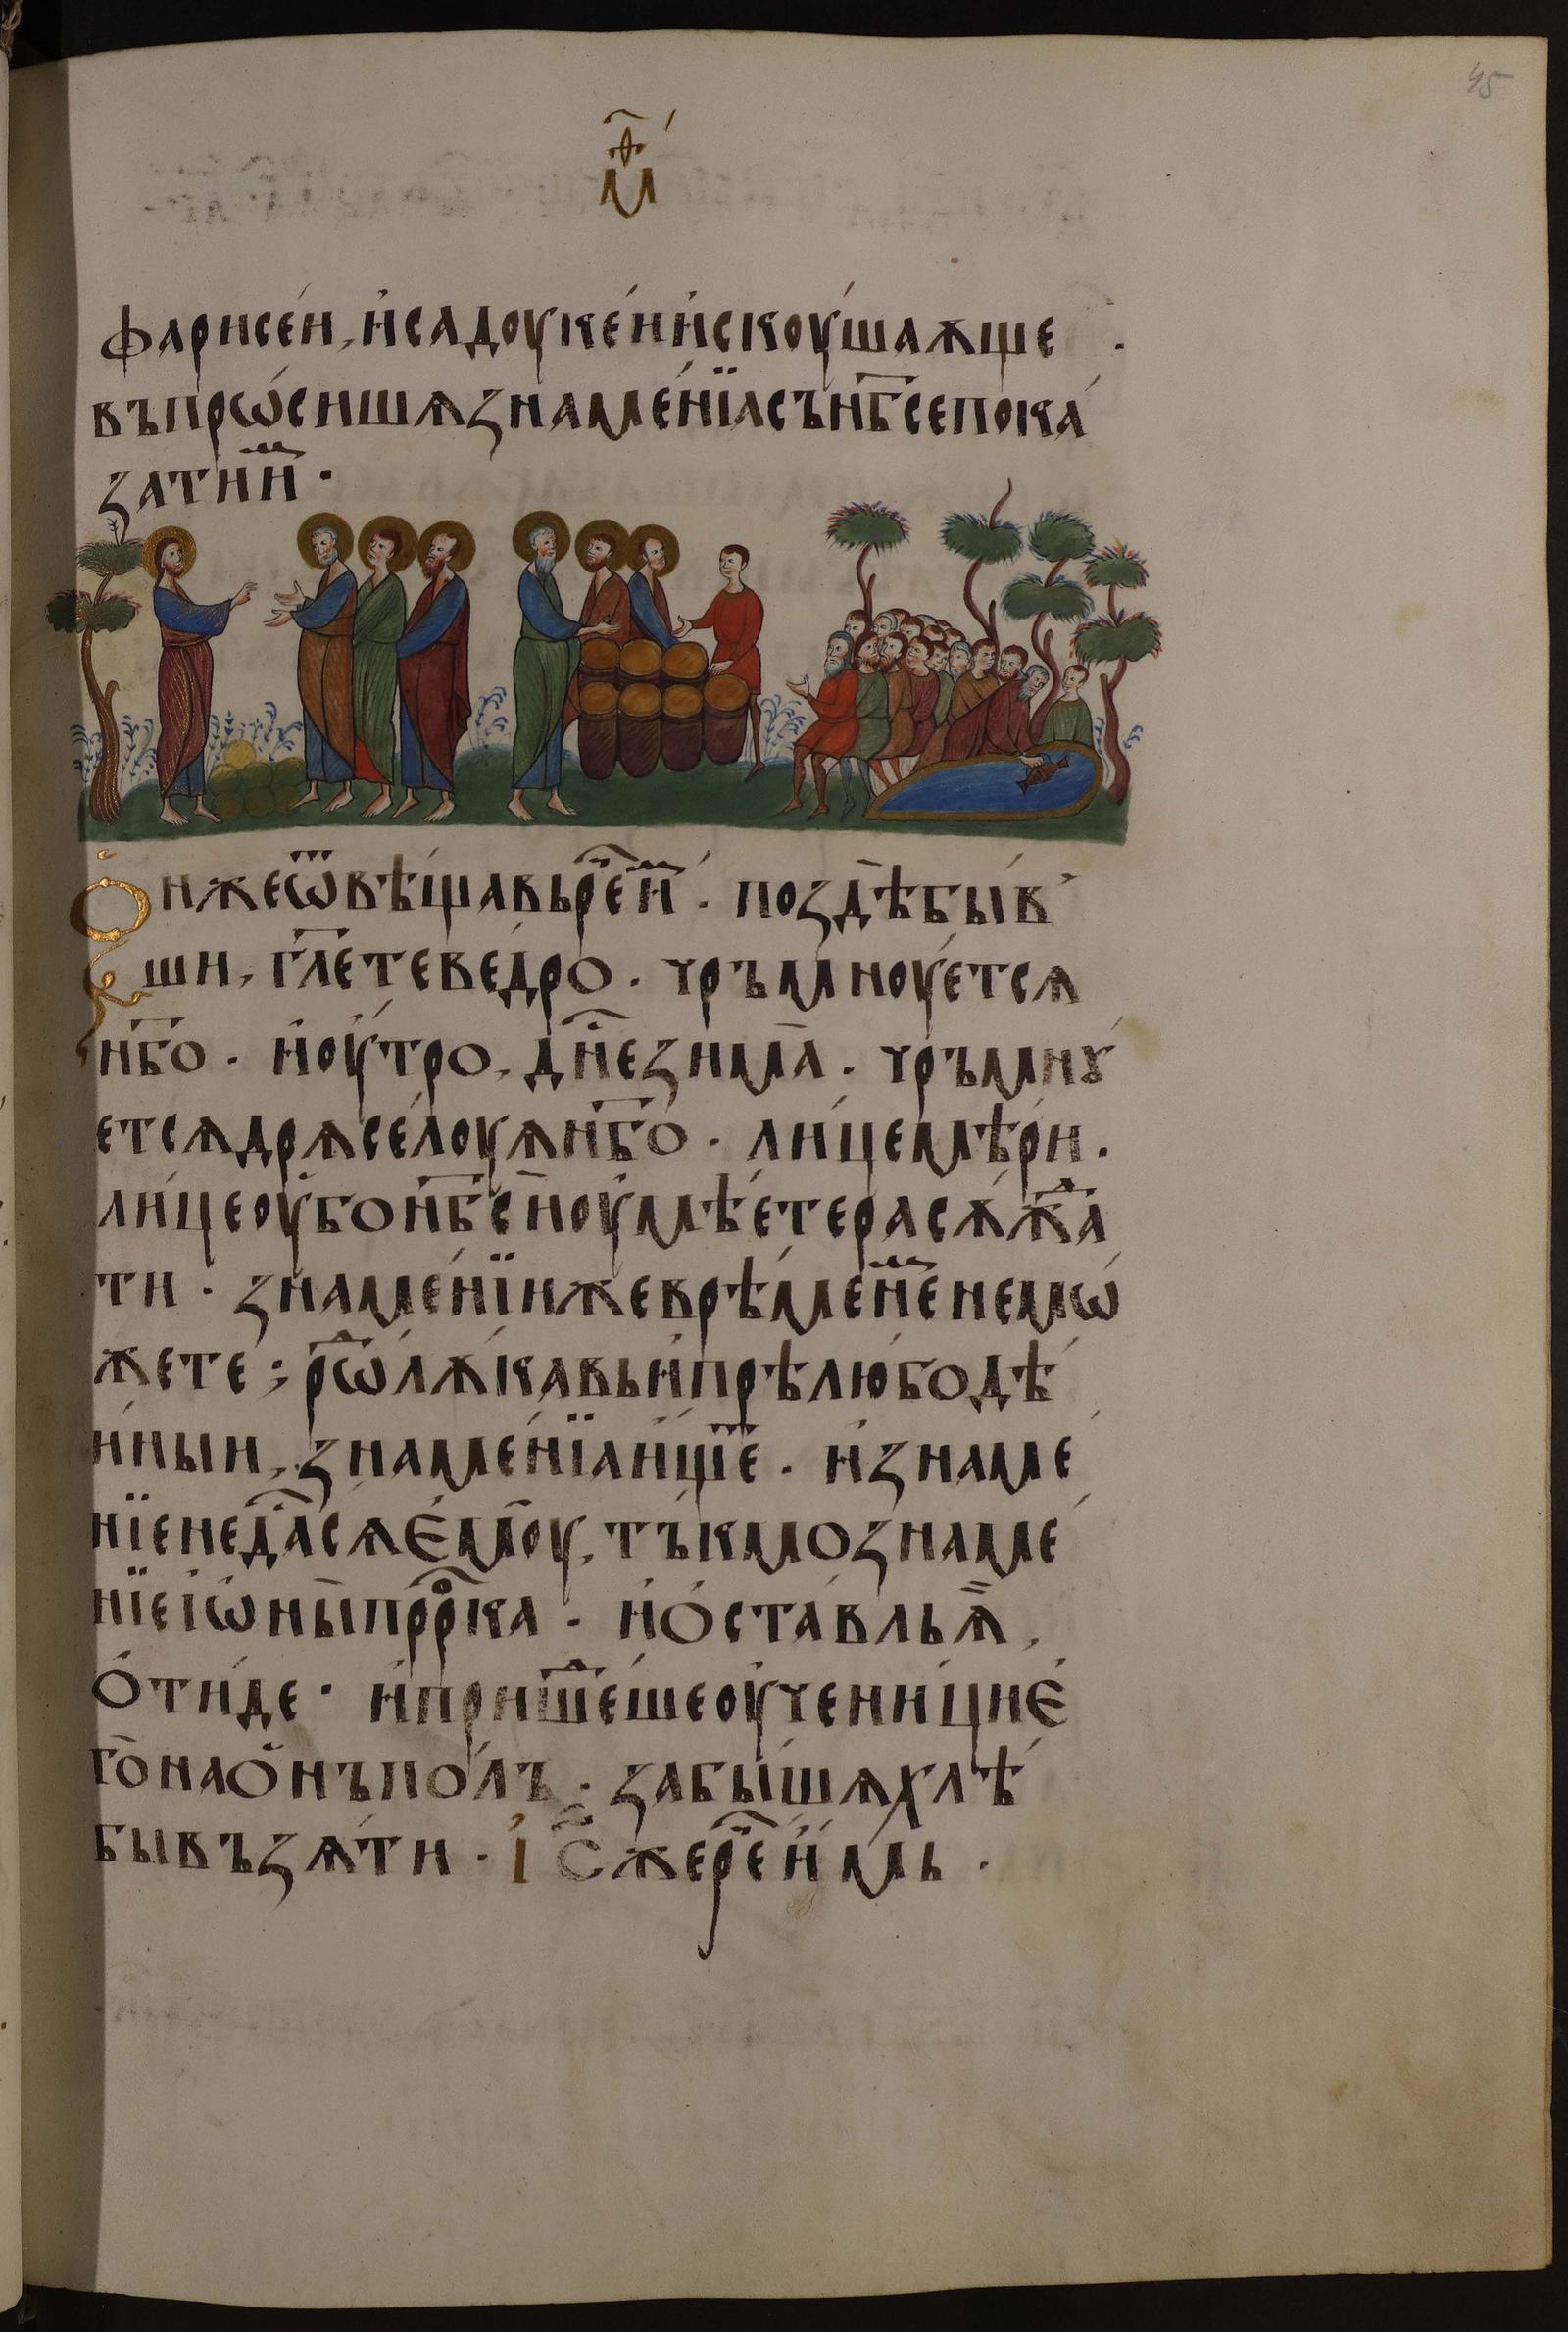 45
мѳ҃
фарисе́и, и҆садоуке́и и҆скоу́шаѫще .
въпрѡ́сишѧ знаме́нїа съ нб҃се пока́
затиⷨи҆ .
Ѻ҆ни же ѿвѣ́щавь рⷱ҇еиⷨ . позⷣѣ бы́в
ши, гл҃ете ве́дро . чръмноу́етсѧ
нб҃о . и҆ оу҆́тро, дн҃е зима̀ . чръмнꙋ
етсѧ дрѧсе́лоуѧ нб҃о . ли́цемѣ́ри .
ли́це оу҆́бо нб҃сноу мѣ́ете расѫжⷣа́
ти . знаме́нїи же врѣ́менеⷨ не мѡ́
жете ; рѡⷣ лѫ́кавьи прѣлюбодѣ́
и҆ныи, знаме́нїа и҆́щеⷮ . и҆ знаме́
нїе не даⷭ҇сѧ є҆моу, тъ́кмо знаме́
нїе і҆ѡ́ны прⷪ҇рка . и҆ ѻ҆ста́вль ѧ҆̀,
ѻ҆ти́де . и҆ пришеⷣше оу҆чени́ци є҆
го на ѻ҆́нъ по́лъ . забы́шѧ хлѣ́
бы въ́зѧти . І҆с҃ же рⷱ҇е и҆мь .